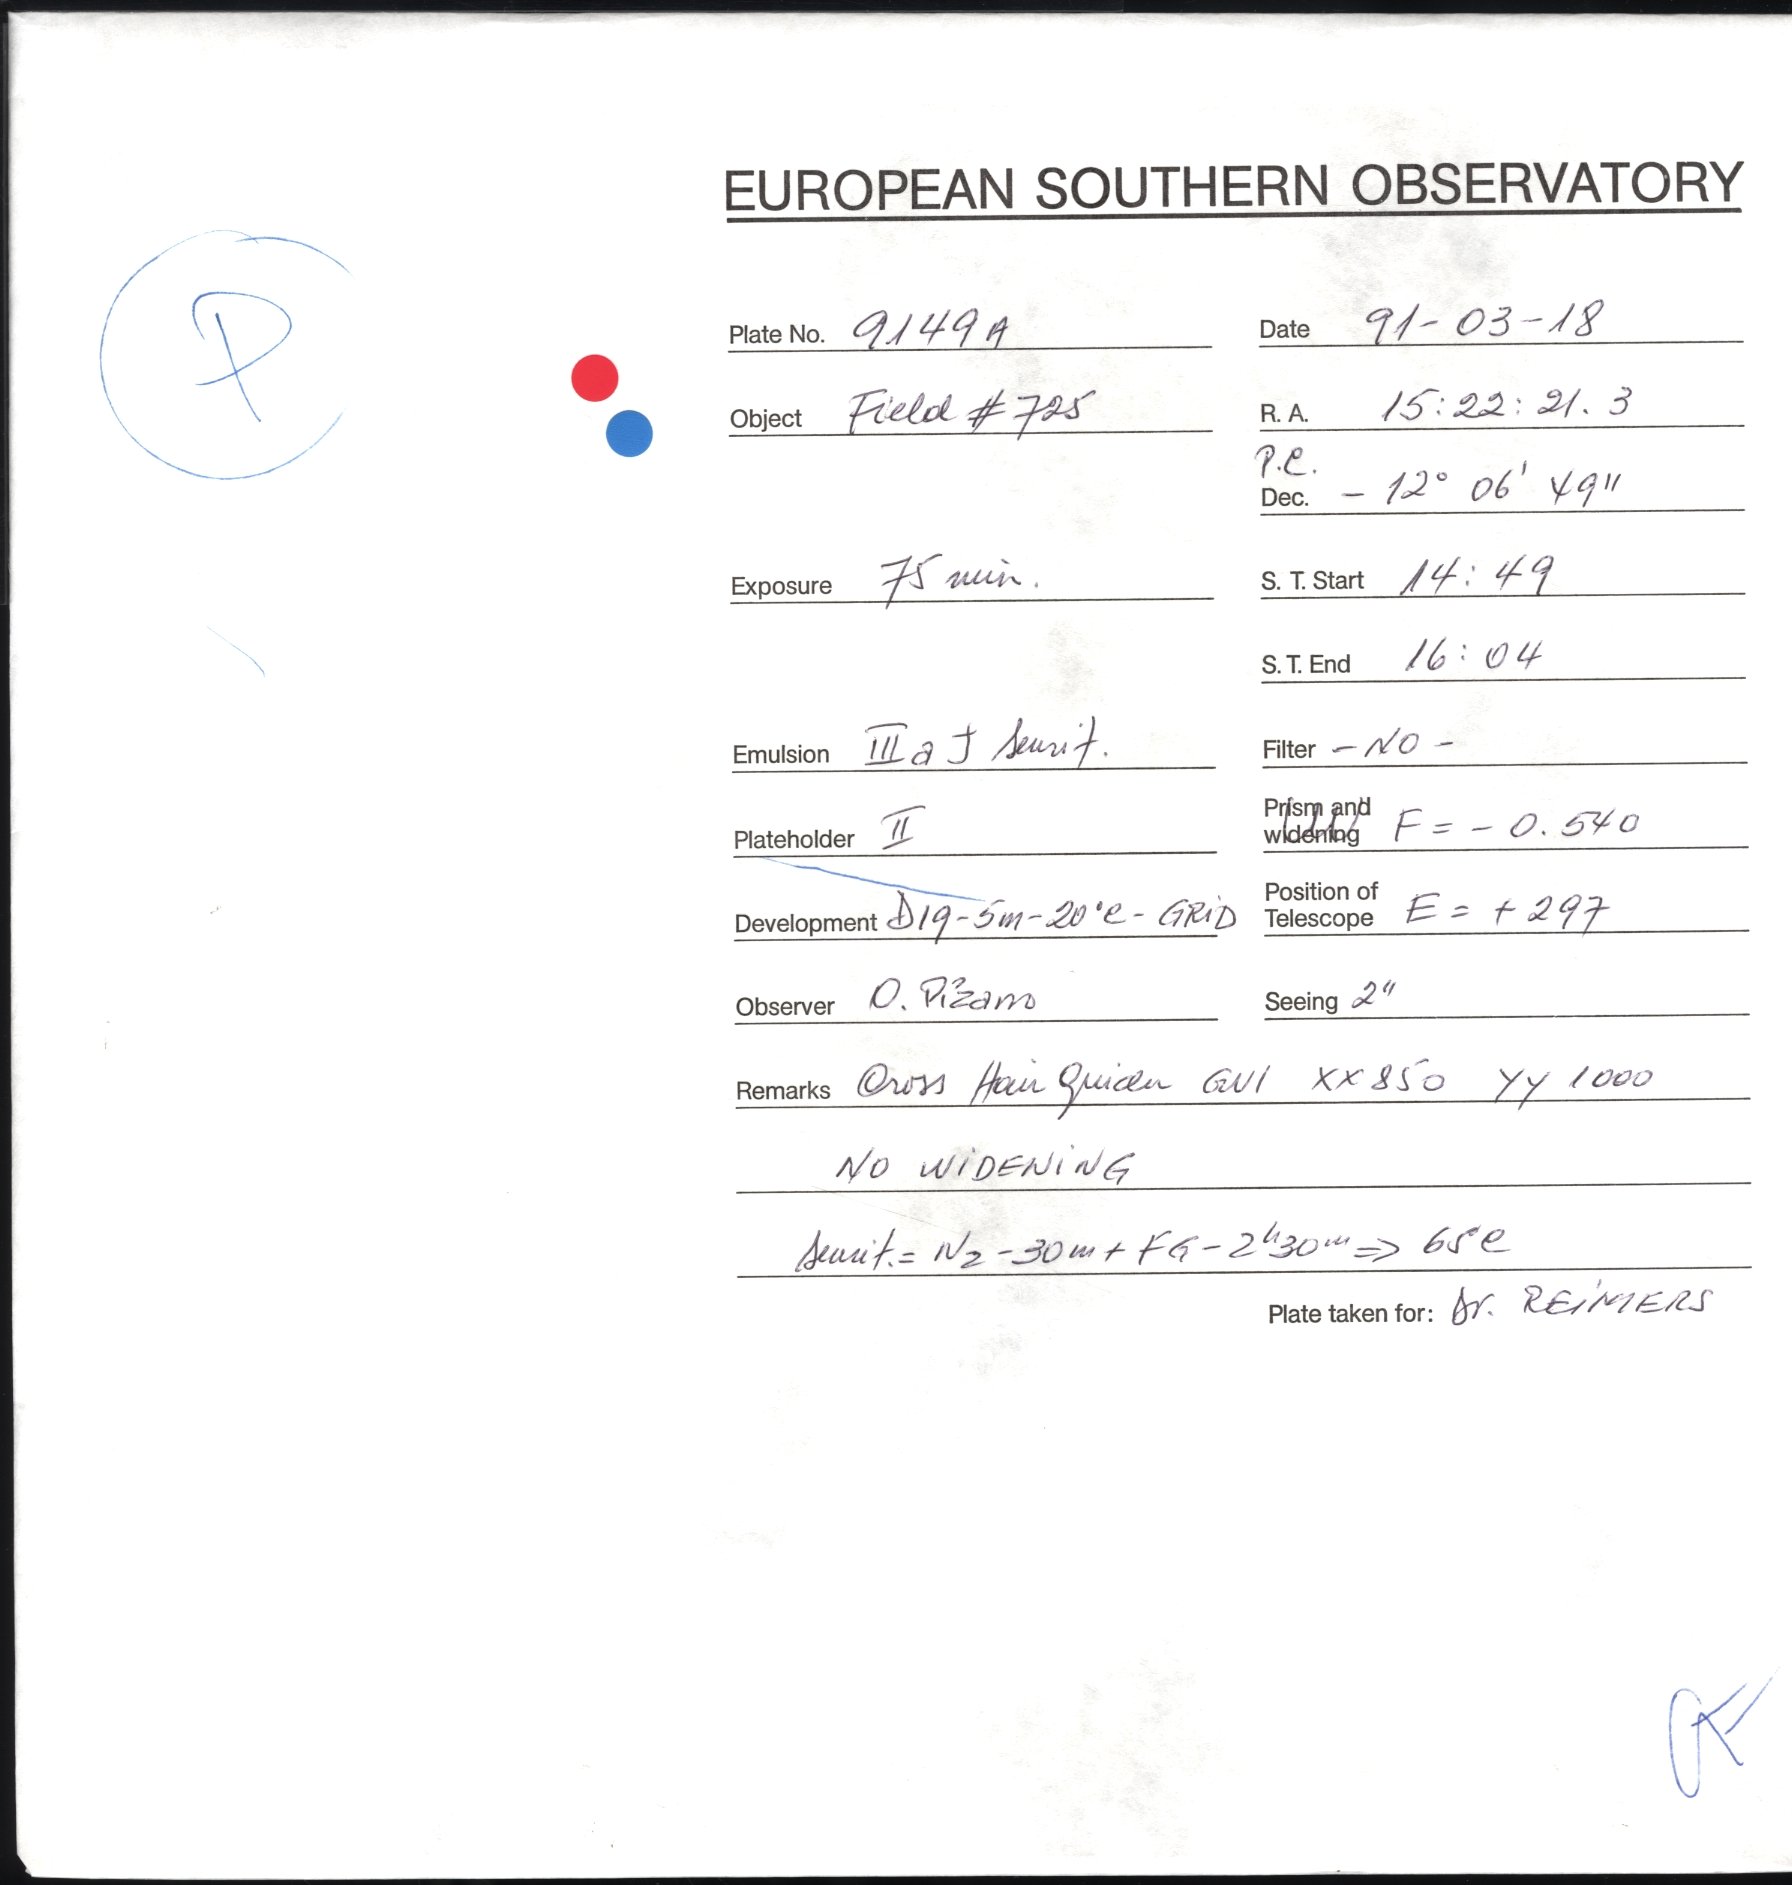 EUROPEAN SOUTHERN OBSERVATORY
P
Plate No. 9149A Date 91-03-18
Object Field #725 R. A. 15:22:21.3
P.C.
Dec. - 12° 06' 49"
Exposure 75 min. S. T. Start 14:49
S. T. End 16:04
Emulsion III a J Sensit. Filter - NO -
Plateholder II Prism and widening F = - 0.540
Development D19-5m-20°C- GRID Position of Telescope E = + 297
Observer O. Pizarro Seeing 2"
Remarks Cross Hair Guider GV1 XX 850 YY 1000
NO WIDENING
Sensit. = N2 -30m + FG - 2h30m => 65°C
Plate taken for: Dr. REIMERS